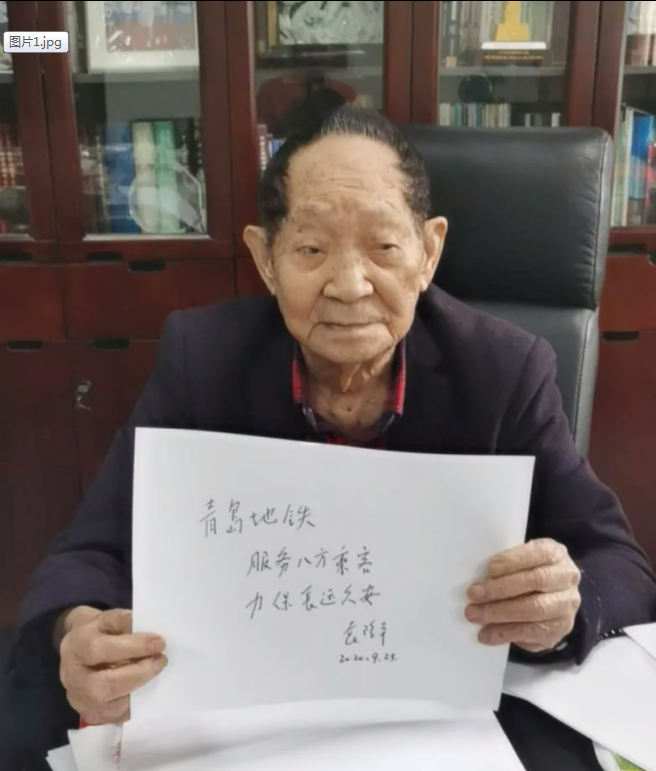 图片1.jpg
青岛地铁
服务八方乘客
力保长运久安
袁隆平
2020.9.25.